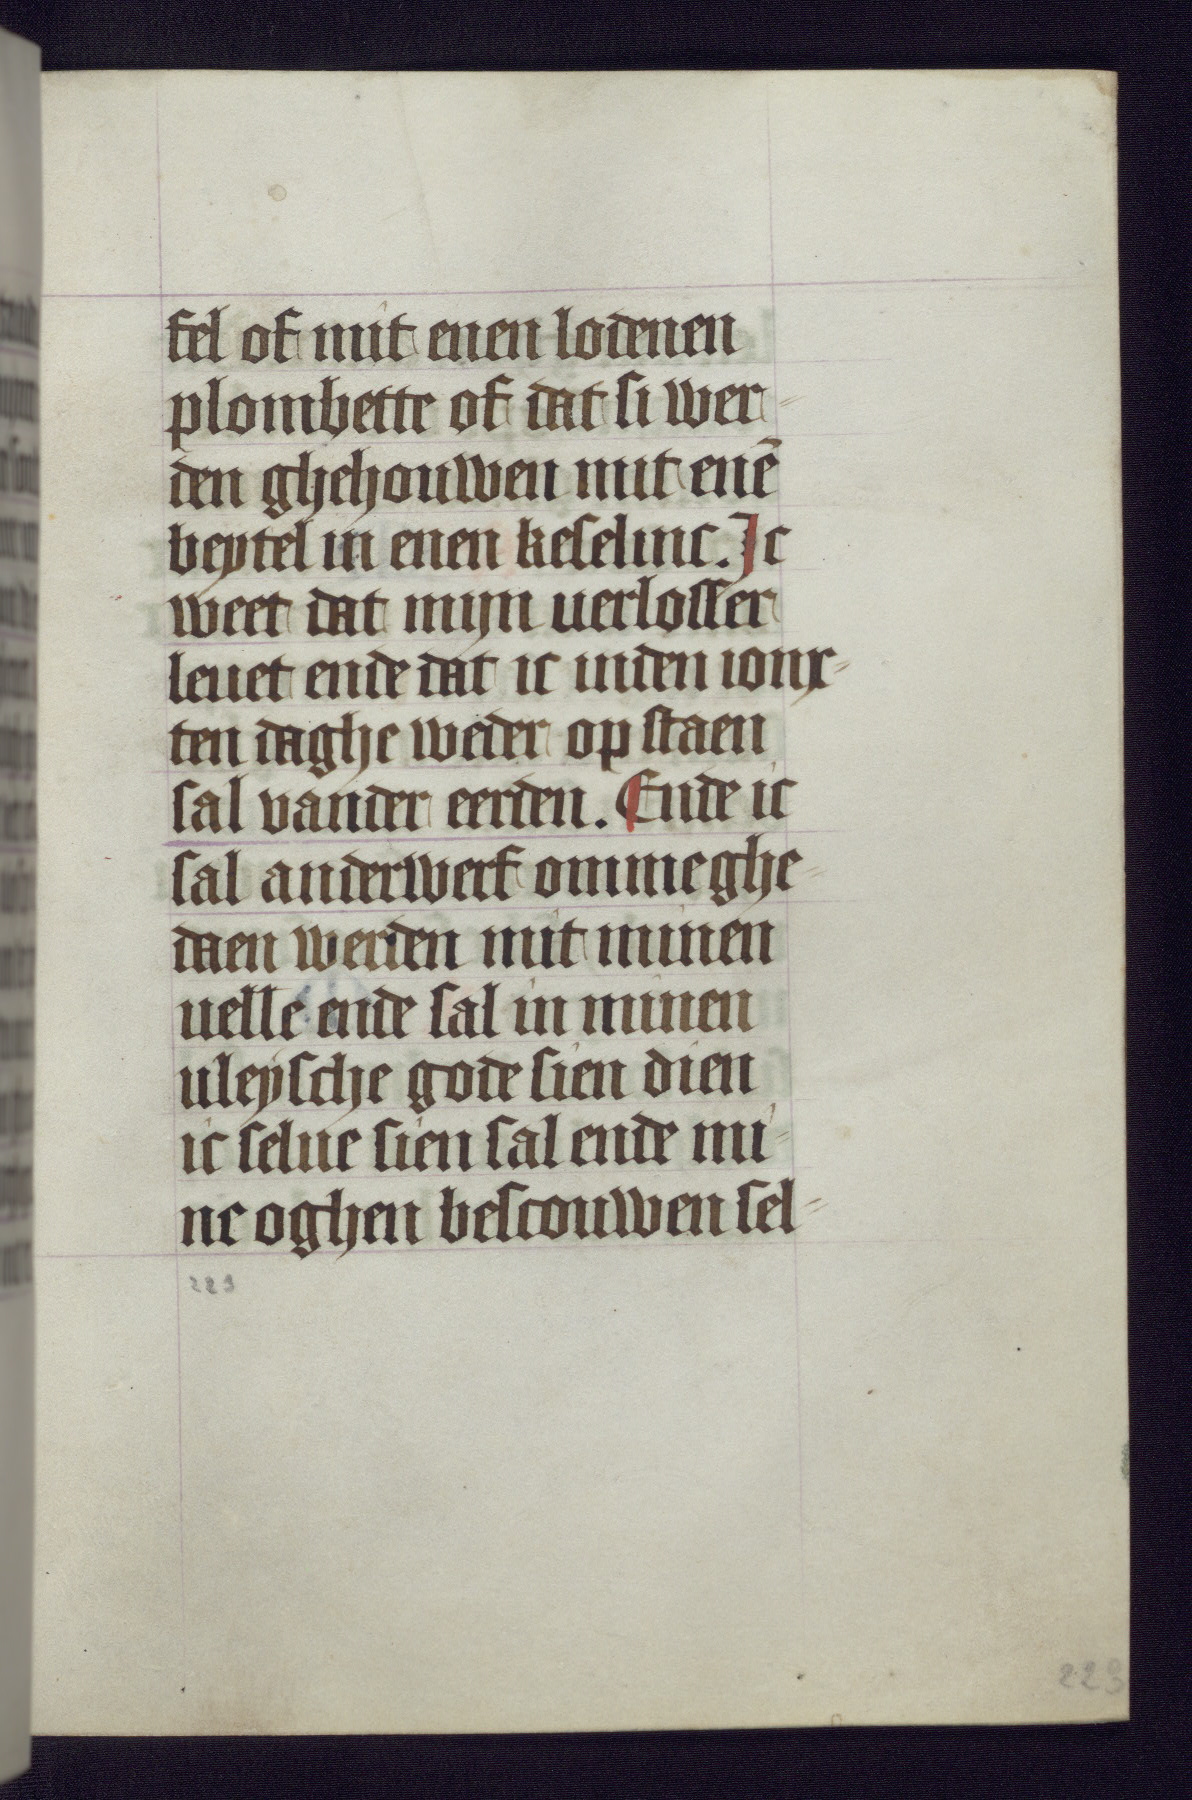 fel of mit enen lodenen
plombette of dat si wer-
den ghehouwen mit enē
beytel in enen keselinc. Ic
weet dat mijn uerlosser
leuet ende dat ic inden ionx-
ten daghe weder op staen
sal vander eerden. Ende ic
sal anderwerf ommeghe-
daen werden mit minen
uelle ende sal in minen
uleysche gode sien dien
ic selue sien sal ende mi-
ne oghen bescouwen sel-
223
223